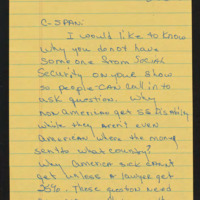 C-SPAN:
I would like to know
why you do not have
someone from Social
Security on your show
so people can call in to
ask question. Why
non American get SS Disability
while they aren't even
American where the money
sent to what country?
Why America sick cannot
get unless a lawyer get
25% - those question need